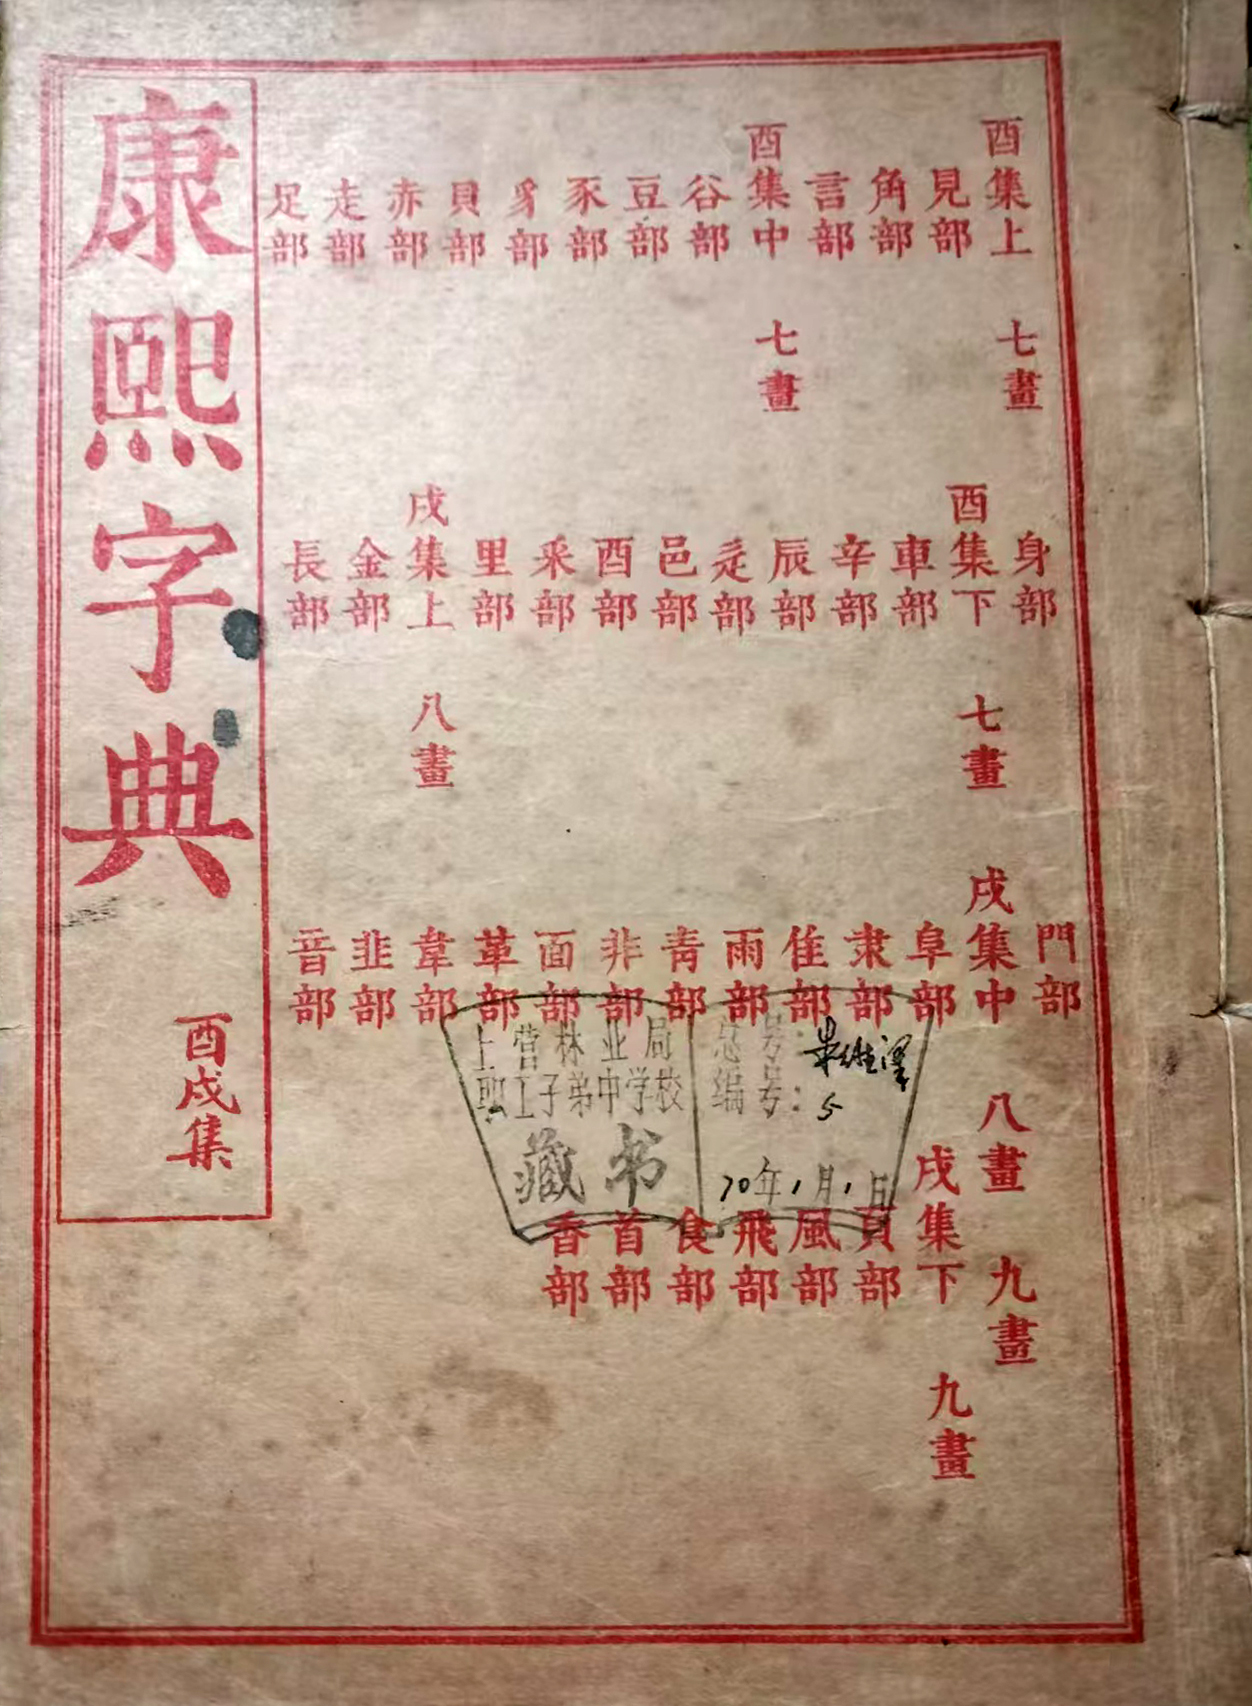 康熙字典
酉戌集
酉集上 七畫
見部
角部
言部
酉集中 七畫
谷部
豆部
豕部
豸部
貝部
赤部
走部
足部
身部
酉集下 七畫
車部
辛部
辰部
辵部
邑部
酉部
釆部
里部
戌集上 八畫
金部
長部
門部
戌集中 八畫 九畫
阜部
隶部
隹部
雨部
靑部
非部
面部
革部
韋部
韭部
音部
戌集下 九畫
頁部
風部
飛部
食部
首部
香部
上营林业局
职工子弟中学校
藏书
总号:
编号: 5
70年1月1日